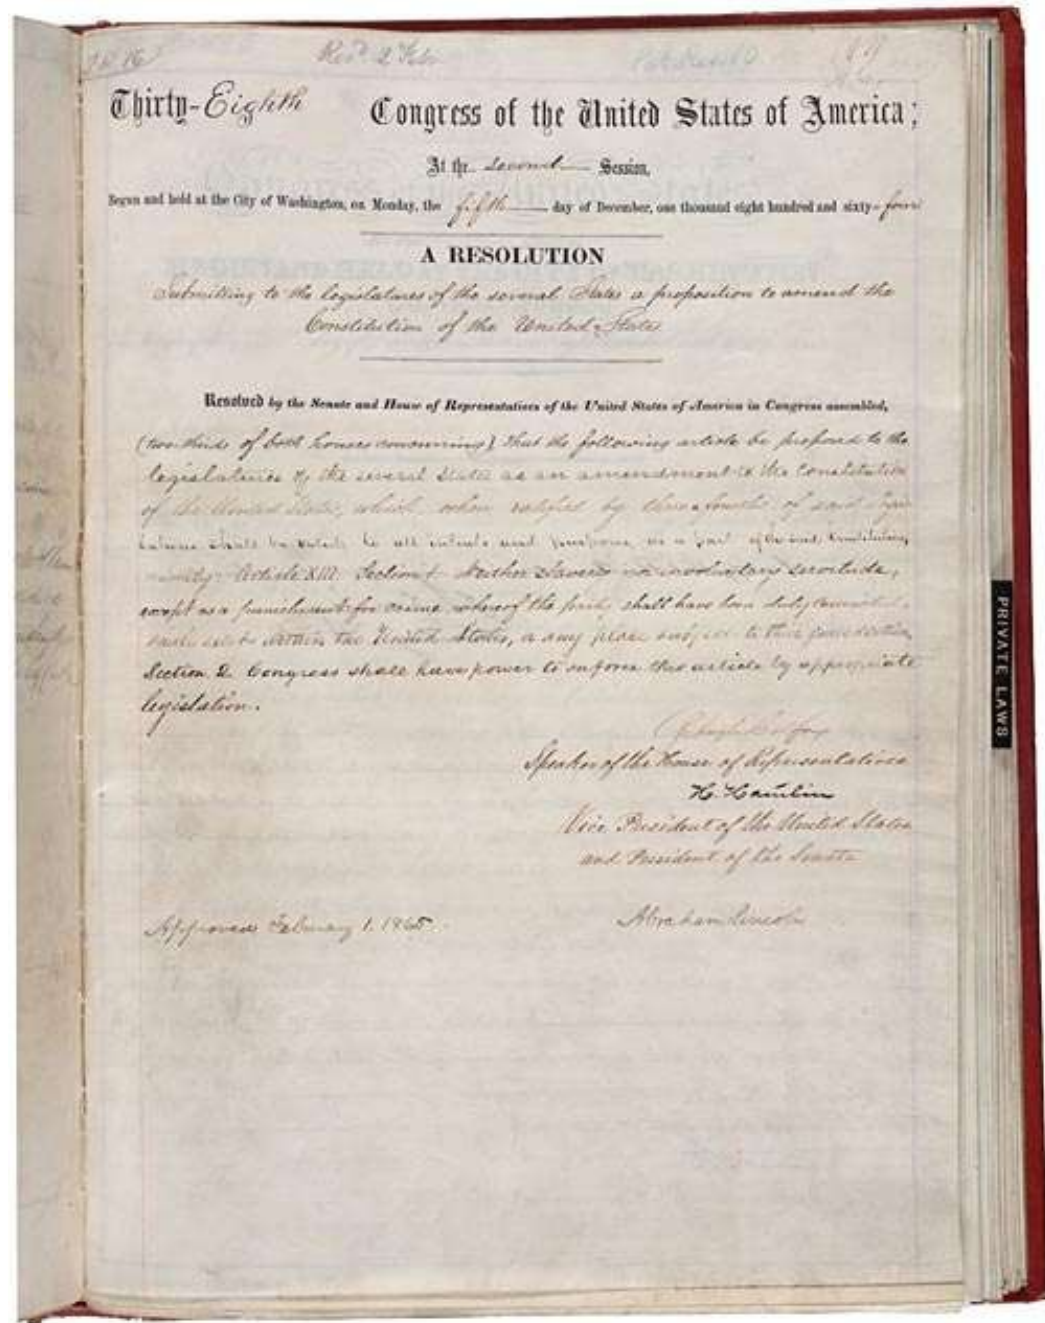 Rec'd 2 Feb
Thirty-Eighth Congress of the United States of America;
At the second Session,
Begun and held at the City of Washington, on Monday, the fifth day of December, one thousand eight hundred and sixty-four
A RESOLUTION
Submitting to the legislatures of the several States a proposition to amend the
Constitution of the United States
Resolved by the Senate and House of Representatives of the United States of America in Congress assembled,
(two-thirds of both houses concurring), That the following article be proposed to the
legislatures of the several States as an amendment to the Constitution
of the United States, which, when ratified by three-fourths of said legis-
latures shall be valid, to all intents and purposes, as a part of the said Constitution,
namely: Article XIII. Section 1. Neither slavery nor involuntary servitude,
except as a punishment for crime whereof the party shall have been duly convicted,
shall exist within the United States, or any place subject to their jurisdiction.
Section 2. Congress shall have power to enforce this article by appropriate
legislation.
Schuyler Colfax
Speaker of the House of Representatives
H. Hamlin
Vice President of the United States
and President of the Senate
Approved February 1. 1865.
Abraham Lincoln
PRIVATE LAWS